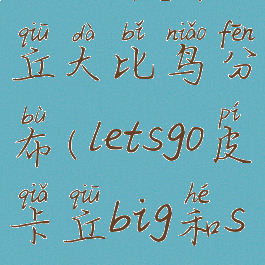 qiū dà bǐ niǎo fēn
丘大比鸟分
bù pí
布(letsgo皮
qiǎ qiū hé
卡丘big和s